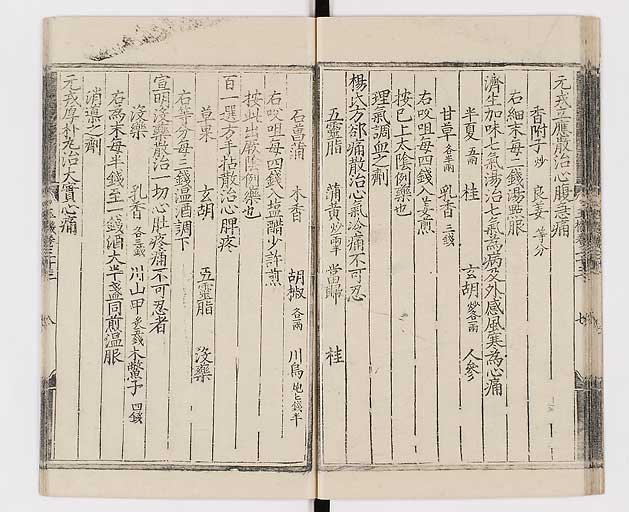 元戎立應散治心腹急痛
香附子炒 良姜等分
右細末每二錢湯點服
濟生加味七氣湯治七氣為病及外感風寒為心痛
半夏五兩 桂 玄胡各一兩 人參
甘草各半兩 乳香三錢
右㕮咀每四錢入姜煎
按已上太陰例藥也
理氣調血之劑
楊氏方却痛散治心氣冷痛不可忍
五靈脂 蒲黃炒 當歸 桂
石菖蒲 木香 胡椒各一兩 川烏炮七錢半
右㕮咀每四錢入塩醋少許煎
按此出厥陰例藥也
百一選方手拈散治心脾疼
草果 玄胡 五靈脂 沒藥
右等分每三錢溫酒調下
宣明沒藥散治一切心肚疼痛不可忍者
沒藥 乳香各三錢 川山甲炙五錢 木鱉子四錢
右為末每半錢至一錢酒大半盞同煎溫服
消導之劑
元戎厚朴丸治大實心痛